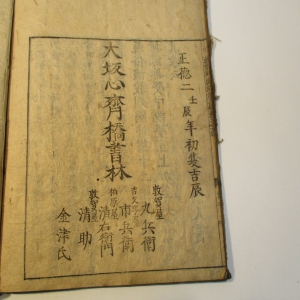 正德二壬辰年初夏吉辰
大坂心齊橋書林
敦賀屋
九兵衛
市兵衛
柏原屋
清右衛門
敦賀屋
清助
金津氏